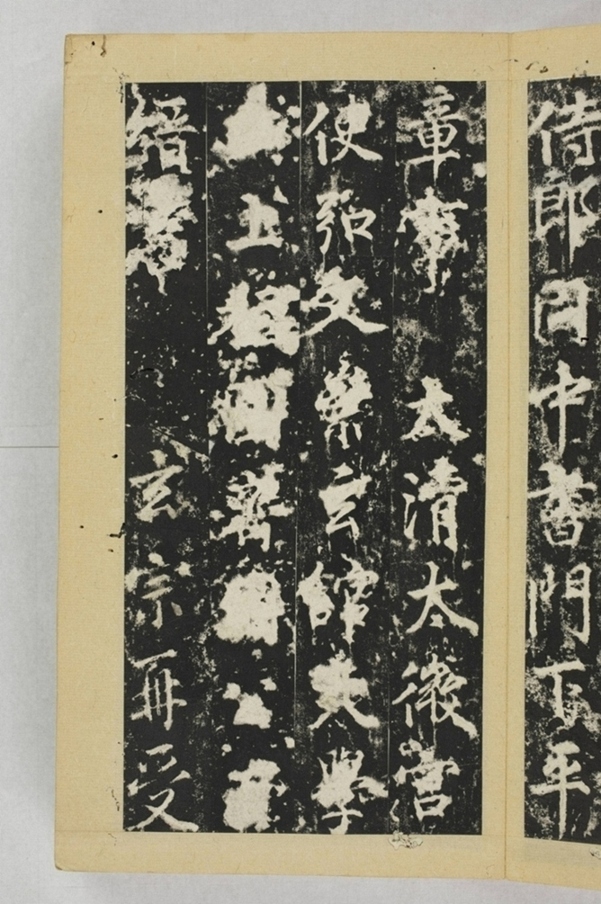 侍郎同中書門下平
章事太清太微宮
使弘文崇玄館大學
士上柱國晉國公
縉書玄宗再受